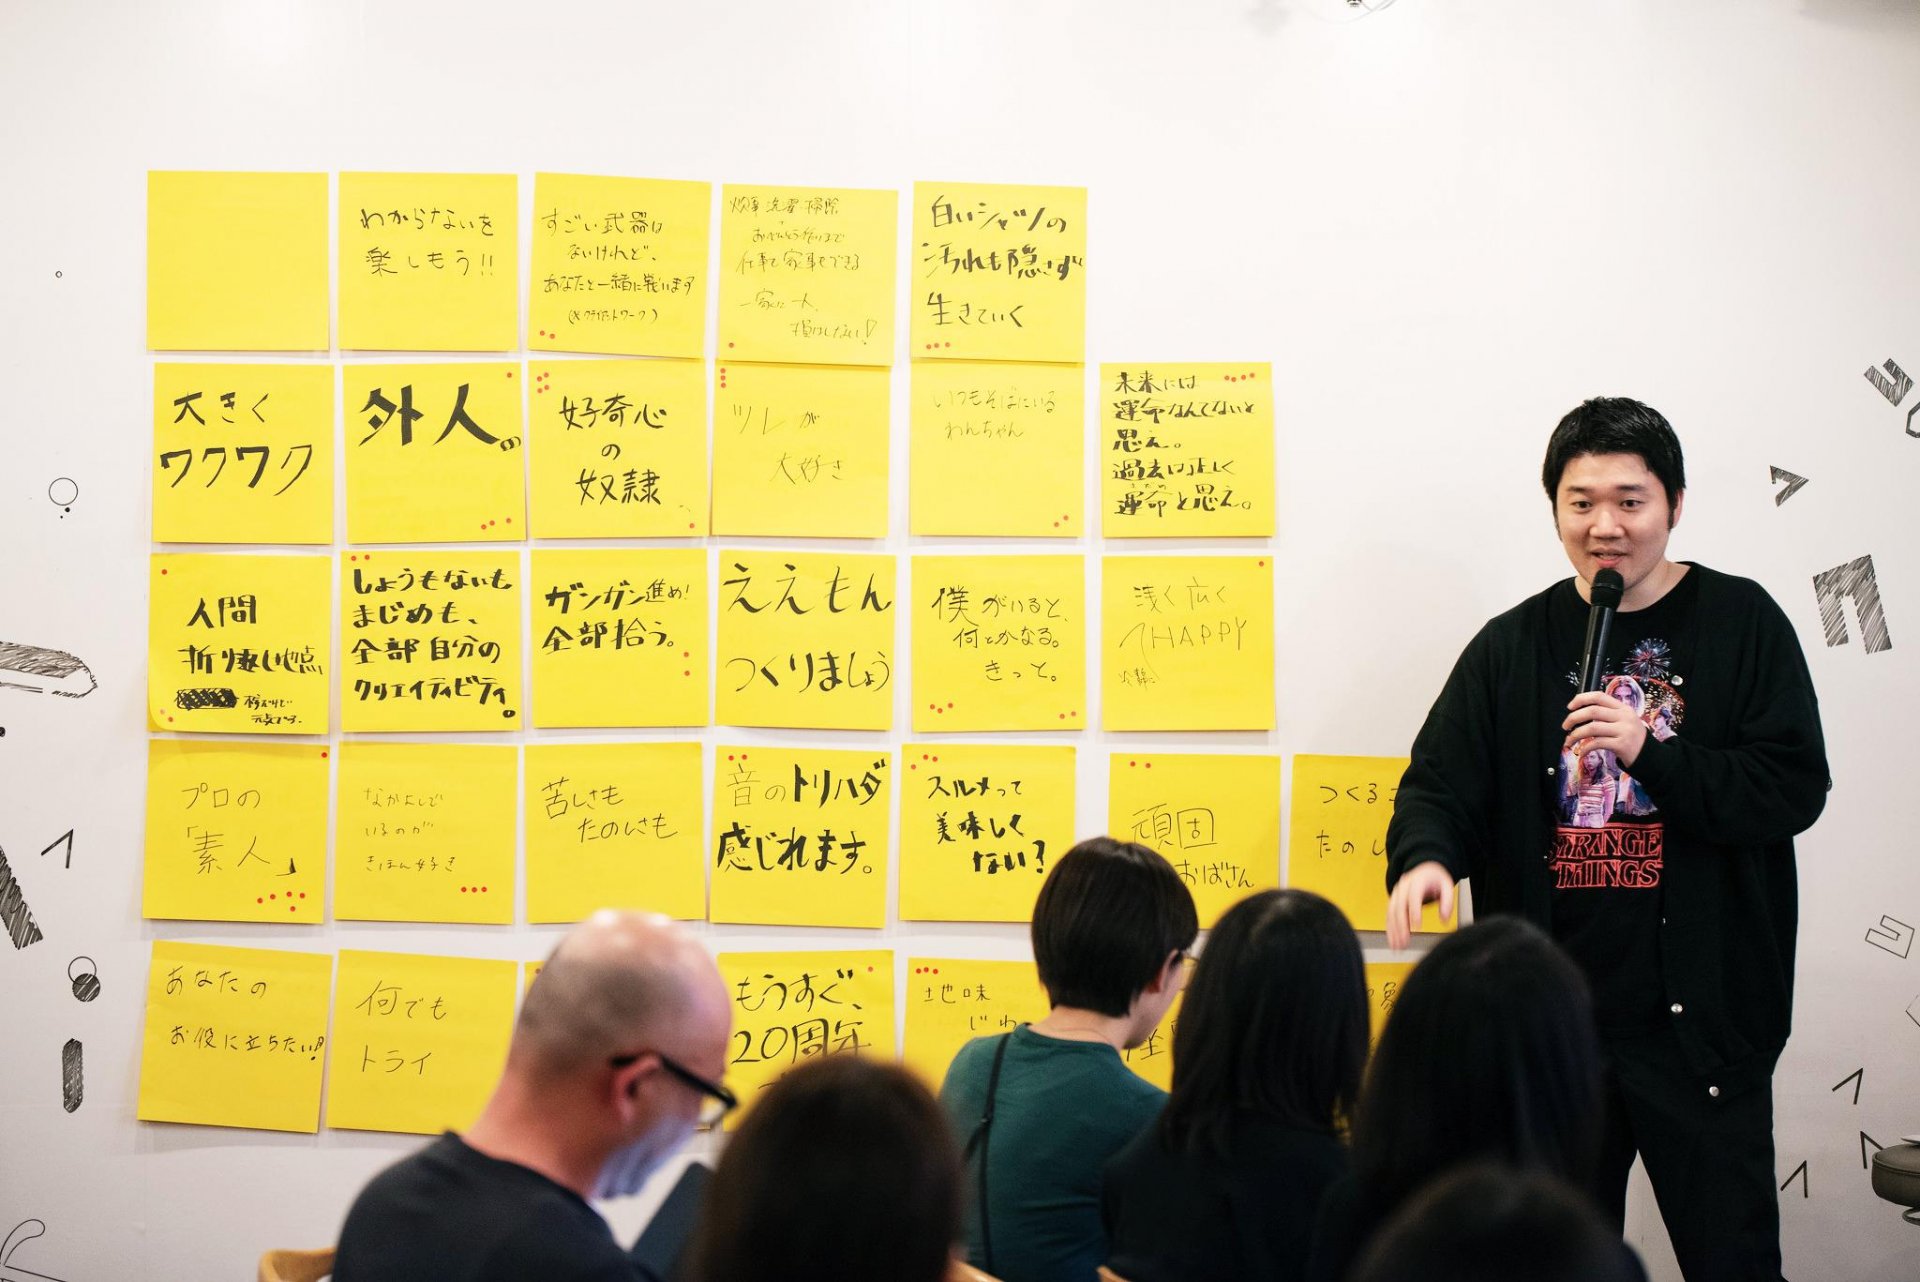 わからないを
楽しもう!!
すごい武器は
ないけれど、
あなたと一緒に戦います
炊事 洗濯 掃除
仕事も家事もできる
一家に一人
損はしない!
白いシャツの
汚れも隠さず
生きていく
大きく
ワクワク
外人。の
好奇心
の
奴隷
ツレが
大好き
いつもそばにいる
わんちゃん
未来には
運命なんてないと
思え。
過去は正しく
運命と思え。
人間
折り返し地点
しょうもないも
まじめも、
全部自分の
クリエイティビティ。
ガンガン進め!
全部拾う。
ええもん
つくりましょう
僕がいると、
何とかなる。
きっと。
浅く広く
HAPPY
プロの
「素人」
なかよしで
いるのが
きほん好き
苦しさも
たのしさも
音のトリハダ
感じれます。
スルメって
美味しく
ない?
頑固
おばさん
つくる
たのし
あなたの
お役に立ちたい!
何でも
トライ
もうすぐ、
20周年
地味
じわ
STRANGE
THINGS